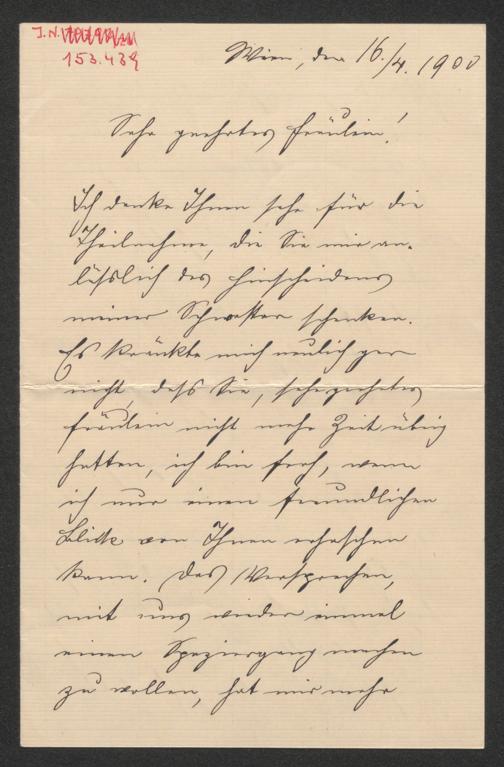 J.N.
153.439
Wien, den 16./4. 1900
Sehr geehrtes Fräulein!
Ich danke Ihnen sehr für die
Theilnahme, die Sie mir an-
läſslich des Hinscheidens
meiner Schwester schenken.
Es kränkte mich neulich gar
nicht, daſs Sie, sehr geehrtes
Fräulein nicht mehr Zeit übrig
hatten, ich bin froh, wenn
ich nur einen freundlichen
Blick von Ihnen erhaschen
kann. Das Versprechen,
mit uns wieder einmal
einen Spaziergang machen
zu wollen, hat mir mehr